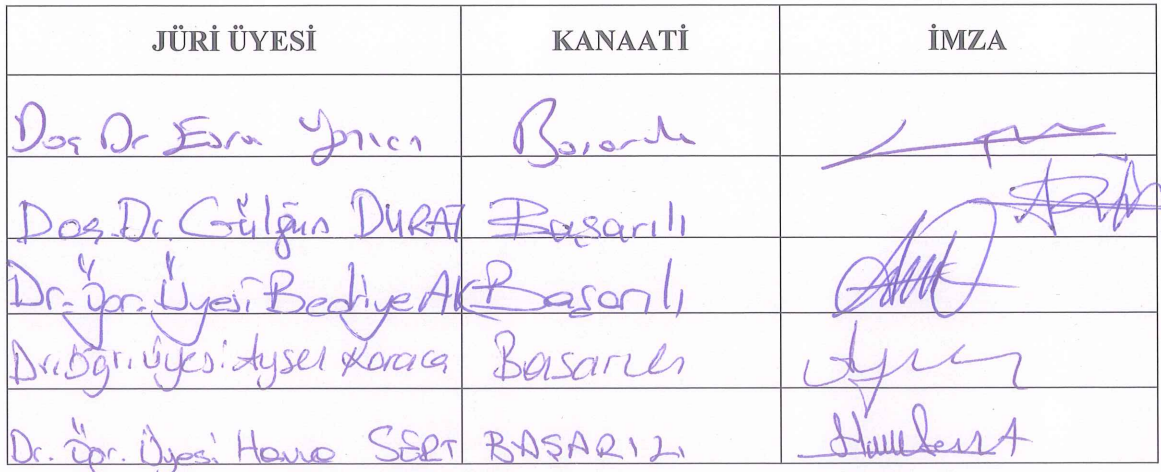 JÜRİ ÜYESİ KANAATİ İMZA
Doç Dr Esra Başarılı
Doç. Dr. Gülgün DURAT Başarılı
Dr. Öğr. Üyesi Bedriye AK Başarılı
Dr. Öğr. Üyesi Aysel Karaca Başarılı
Dr. Öğr. Üyesi Havva SERT BAŞARILI